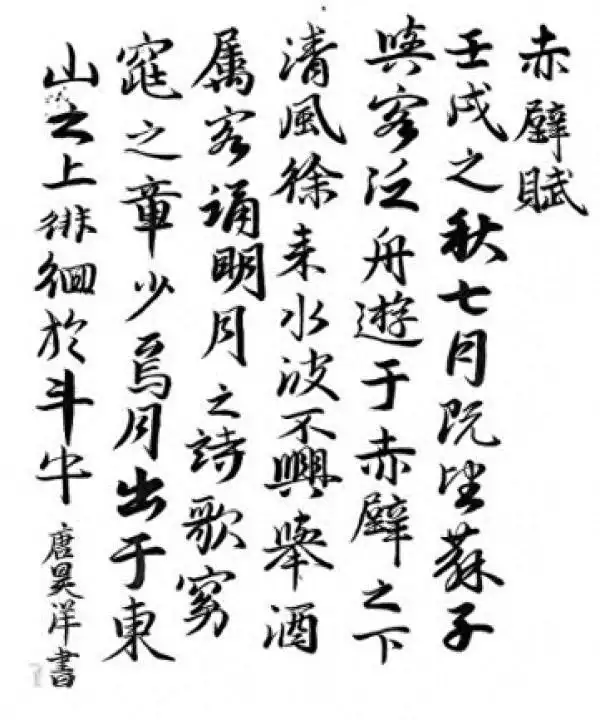 赤壁賦
壬戌之秋七月既望蘇子
與客泛舟遊于赤壁之下
清風徐来水波不興舉酒
属客誦明月之詩歌窈
窕之章少焉月出于東
山之上徘徊於斗牛
唐昊洋書